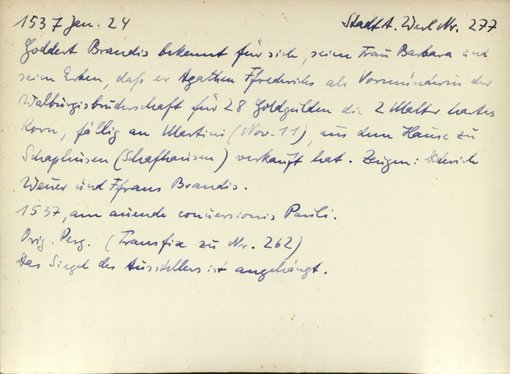 1537 Jan. 24 Stadt A. Werl Nr. 277
Goddert Brandis bekennt für sich, seine Frau Barbara und
seine Erben, daß er Agathen Ffrederichs als Vormünderin der
Walburgisbruderschaft für 28 Goldgulden die 2 Malter hartes
Korn, fällig an Martini (Nov. 11), aus dem Hause zu
Schaphusen (Schafhausen) verkauft hat. Zeugen: Diderich
und Ffrans Brandis.
1537, am avende conversionis Pauli.
Orig. Perg. (Transfix zu Nr. 262)
Das Siegel des Ausstellers ist angehängt.